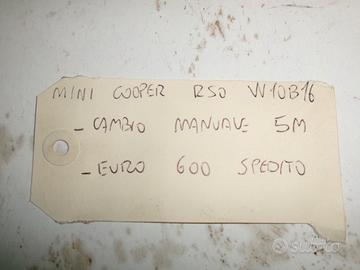 MINI COOPER R50 W10B16
- CAMBIO MANUALE 5M
- EURO 600 SPEDITO
subito